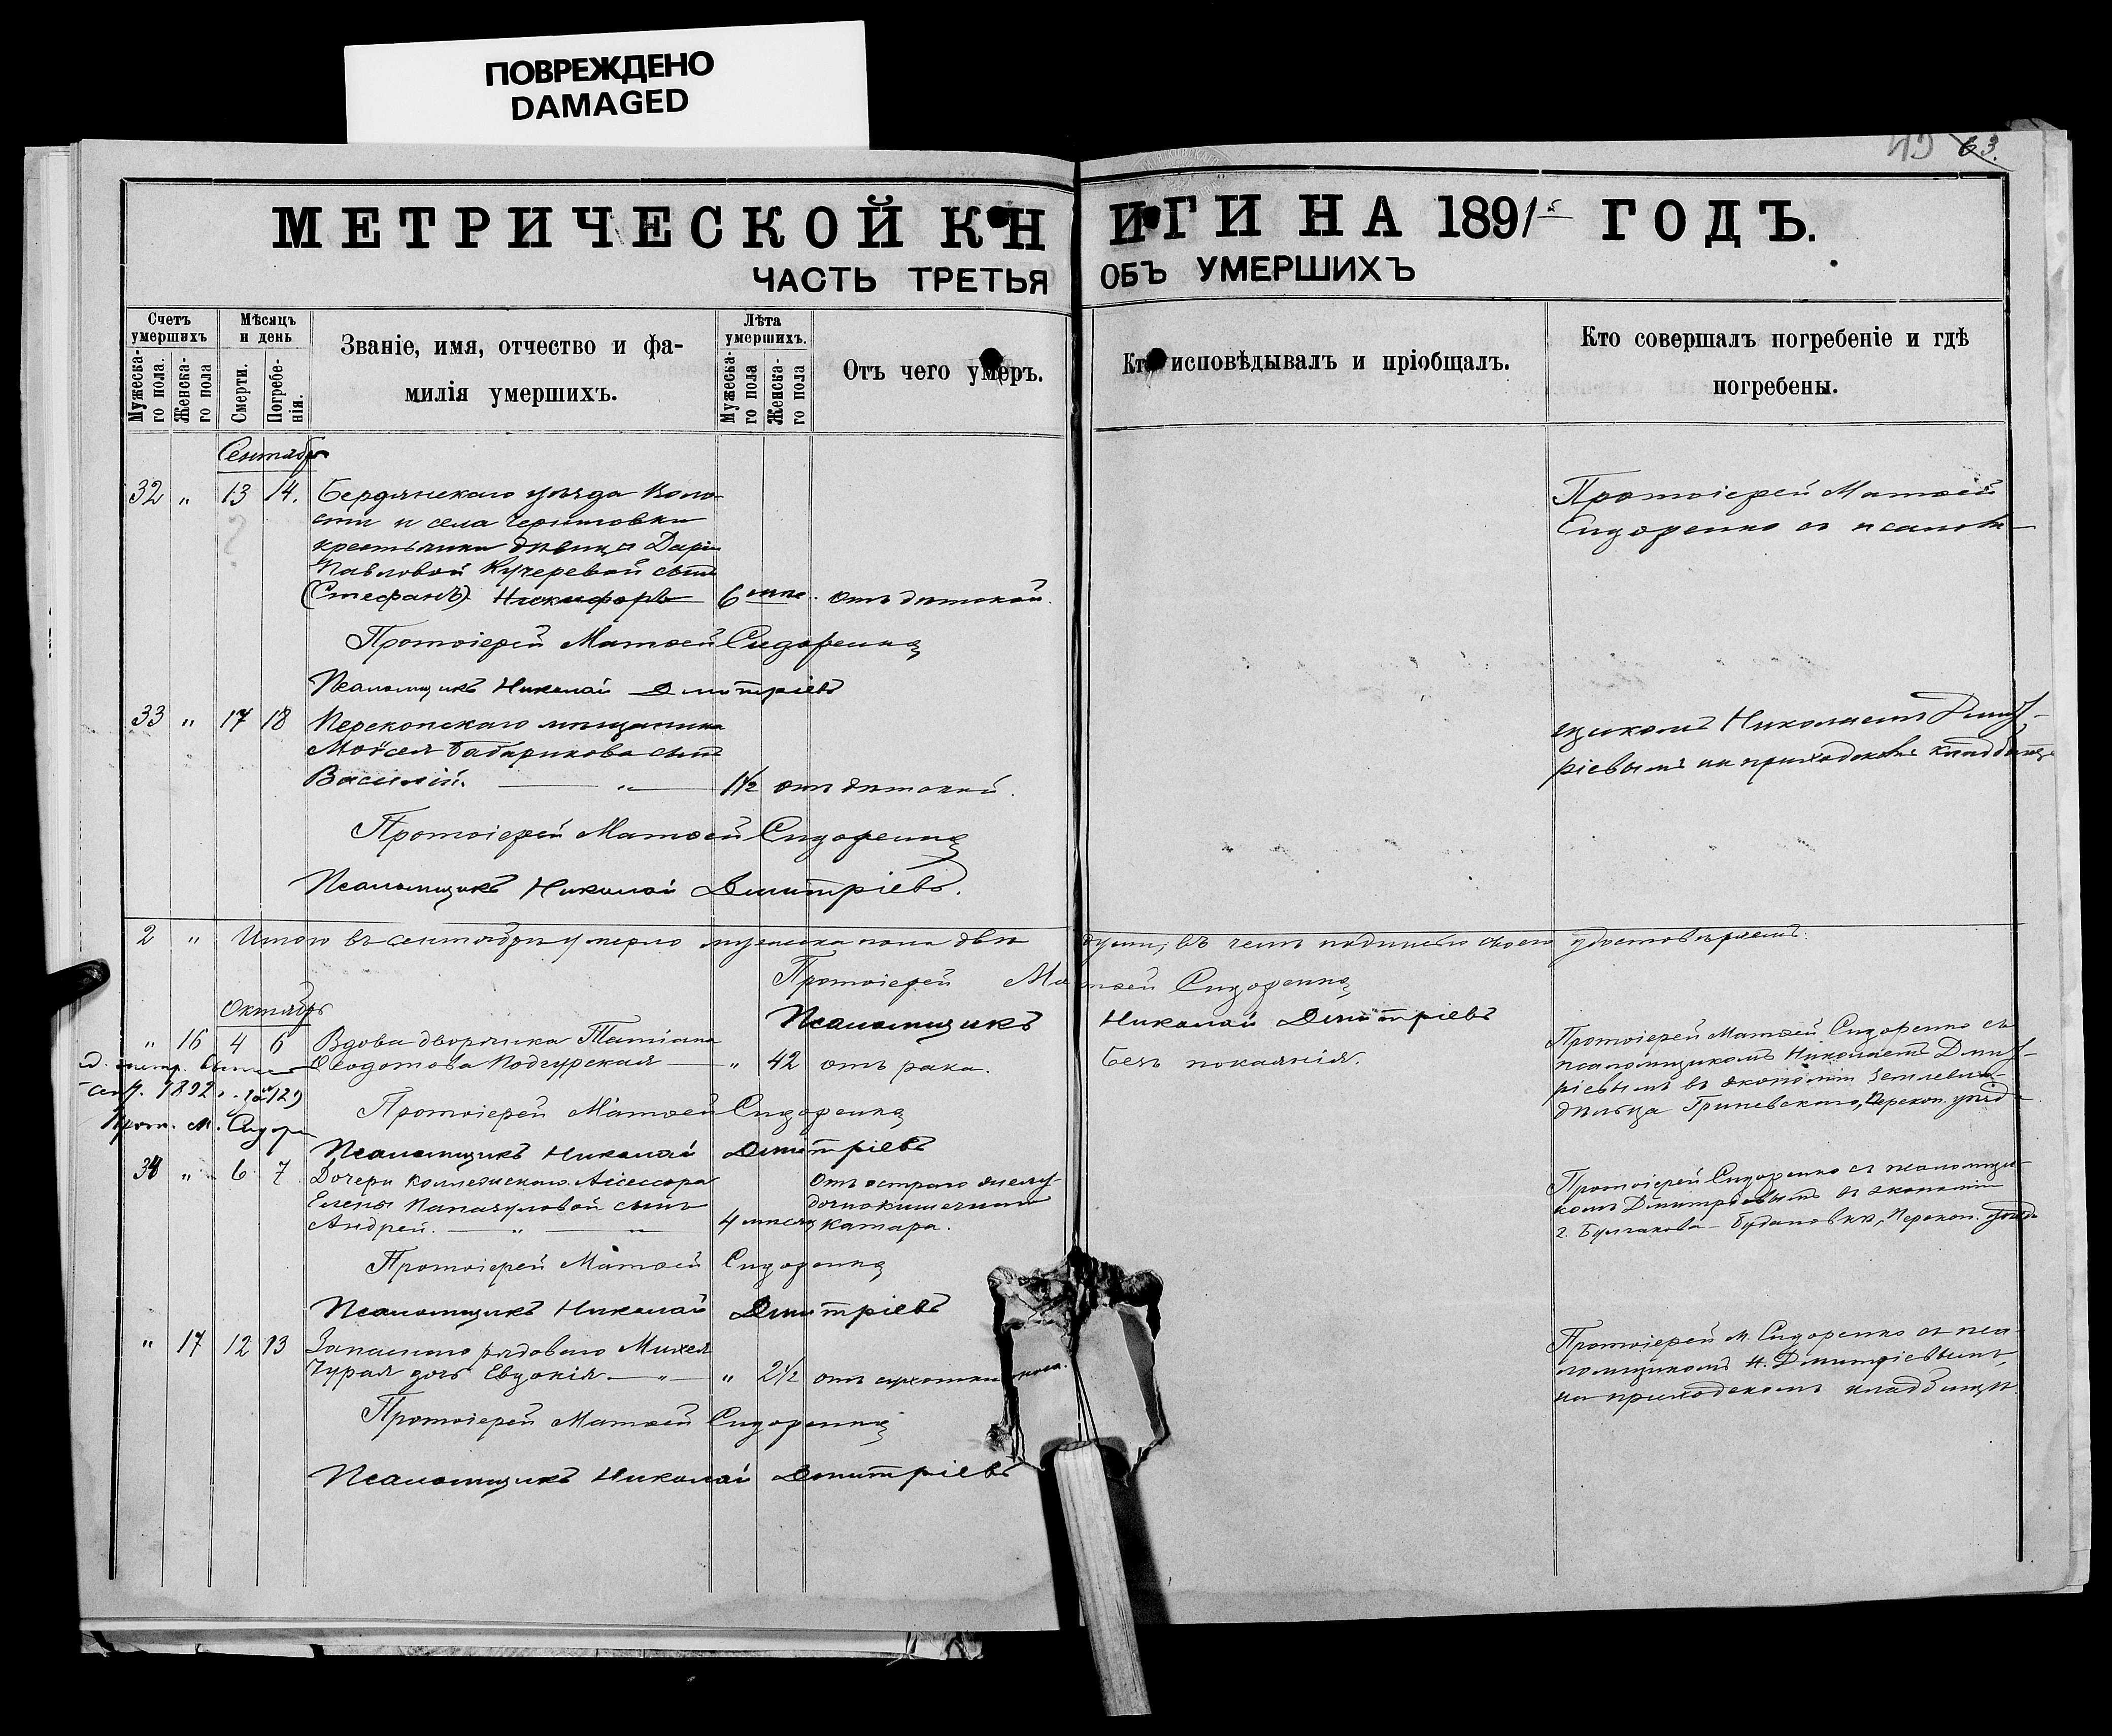 ПОВРЕЖДЕНО
DAMAGED
63.
МЕТРИЧЕСКОЙ КНИГИ НА 1891 ГОДЪ.
ЧАСТЬ ТРЕТЬЯ ОБЪ УМЕРШИХЪ
Счетъ умершихъ
Мужескаго пола.
Женскаго пола
Мѣсяцъ и день
Смерти.
Погребенія.
Званіе, имя, отчество и фамилія умершихъ.
Лѣта умершихъ.
Мужескаго пола
Женскаго пола
Отъ чего умеръ.
Кто исповѣдывалъ и пріобщалъ.
Кто совершалъ погребеніе и гдѣ погребены.
Сентябрь
32 " 13 14. Бердянскаго уѣзда Воло-
сти и села Черниговки
крестьянки дѣвицы Даріи
Павловой Кучеревой сынъ
(Стефанъ) Никифоръ 6 отъ дѣтской.
Протоіерей Матѳей
Сидоренко съ псалом-
Протоіерей Матѳей Сидоренко
Псаломщикъ Николай Дмитріевъ
33 " 17 18 Перекопскаго мѣщанина
Моѵсея сынъ
Василій. " 1½ отъ дѣтской.
щикомъ Николаемъ Дмит-
ріевымъ на приходскомъ кладбищѣ
Протоіерей Матѳей Сидоренко
Псаломщикъ Николай Дмитріевъ.
2 " Итого въ сентябрѣ умерло мужеска пола двѣ души, въ чемъ подписью своею удостовѣряемъ.
Протоіерей Матѳей Сидоренко
Псаломщикъ Николай Дмитріевъ
Октябрь
" 16 4 6 Вдова дворянка Татіана
Ѳеодотова Подгурская " 42 отъ рака. Безъ покаянія.
Протоіерей Матѳей Сидоренко съ
псаломщикомъ Николаемъ Дмит-
ріевымъ въ экономіи землевла-
дѣльца Гриневскаго, Перекоп. уѣзд
1892 г.
Прот. М. Сидоре
Протоіерей Матѳей Сидоренко
Псаломщикъ Николай Дмитріевъ
34 " 6 7 Дочери Коллежскаго Ассесора
Елены сынъ
Андрей. " " 4 мѣсяц
Отъ остраго желу-
дочнокишечнаго
катара.
Протоіерей Сидоренко съ псаломщи-
комъ Дмитріевымъ въ экономіи
г. Булгакова Будановки, Перекоп. уѣзда
Протоіерей Матѳей Сидоренко
Псаломщикъ Николай Дмитріевъ
" 17 12 13 Запаснаго рядоваго Михея
Чурая дочь Евдокія " " 2½ отъ сухотки
Протоіерей М. Сидоренко съ пса-
ломщикомъ Н. Дмитріевымъ,
на приходскомъ кладбищѣ.
Протоіерей Матѳей Сидоренко
Псаломщикъ Николай Дмитріевъ